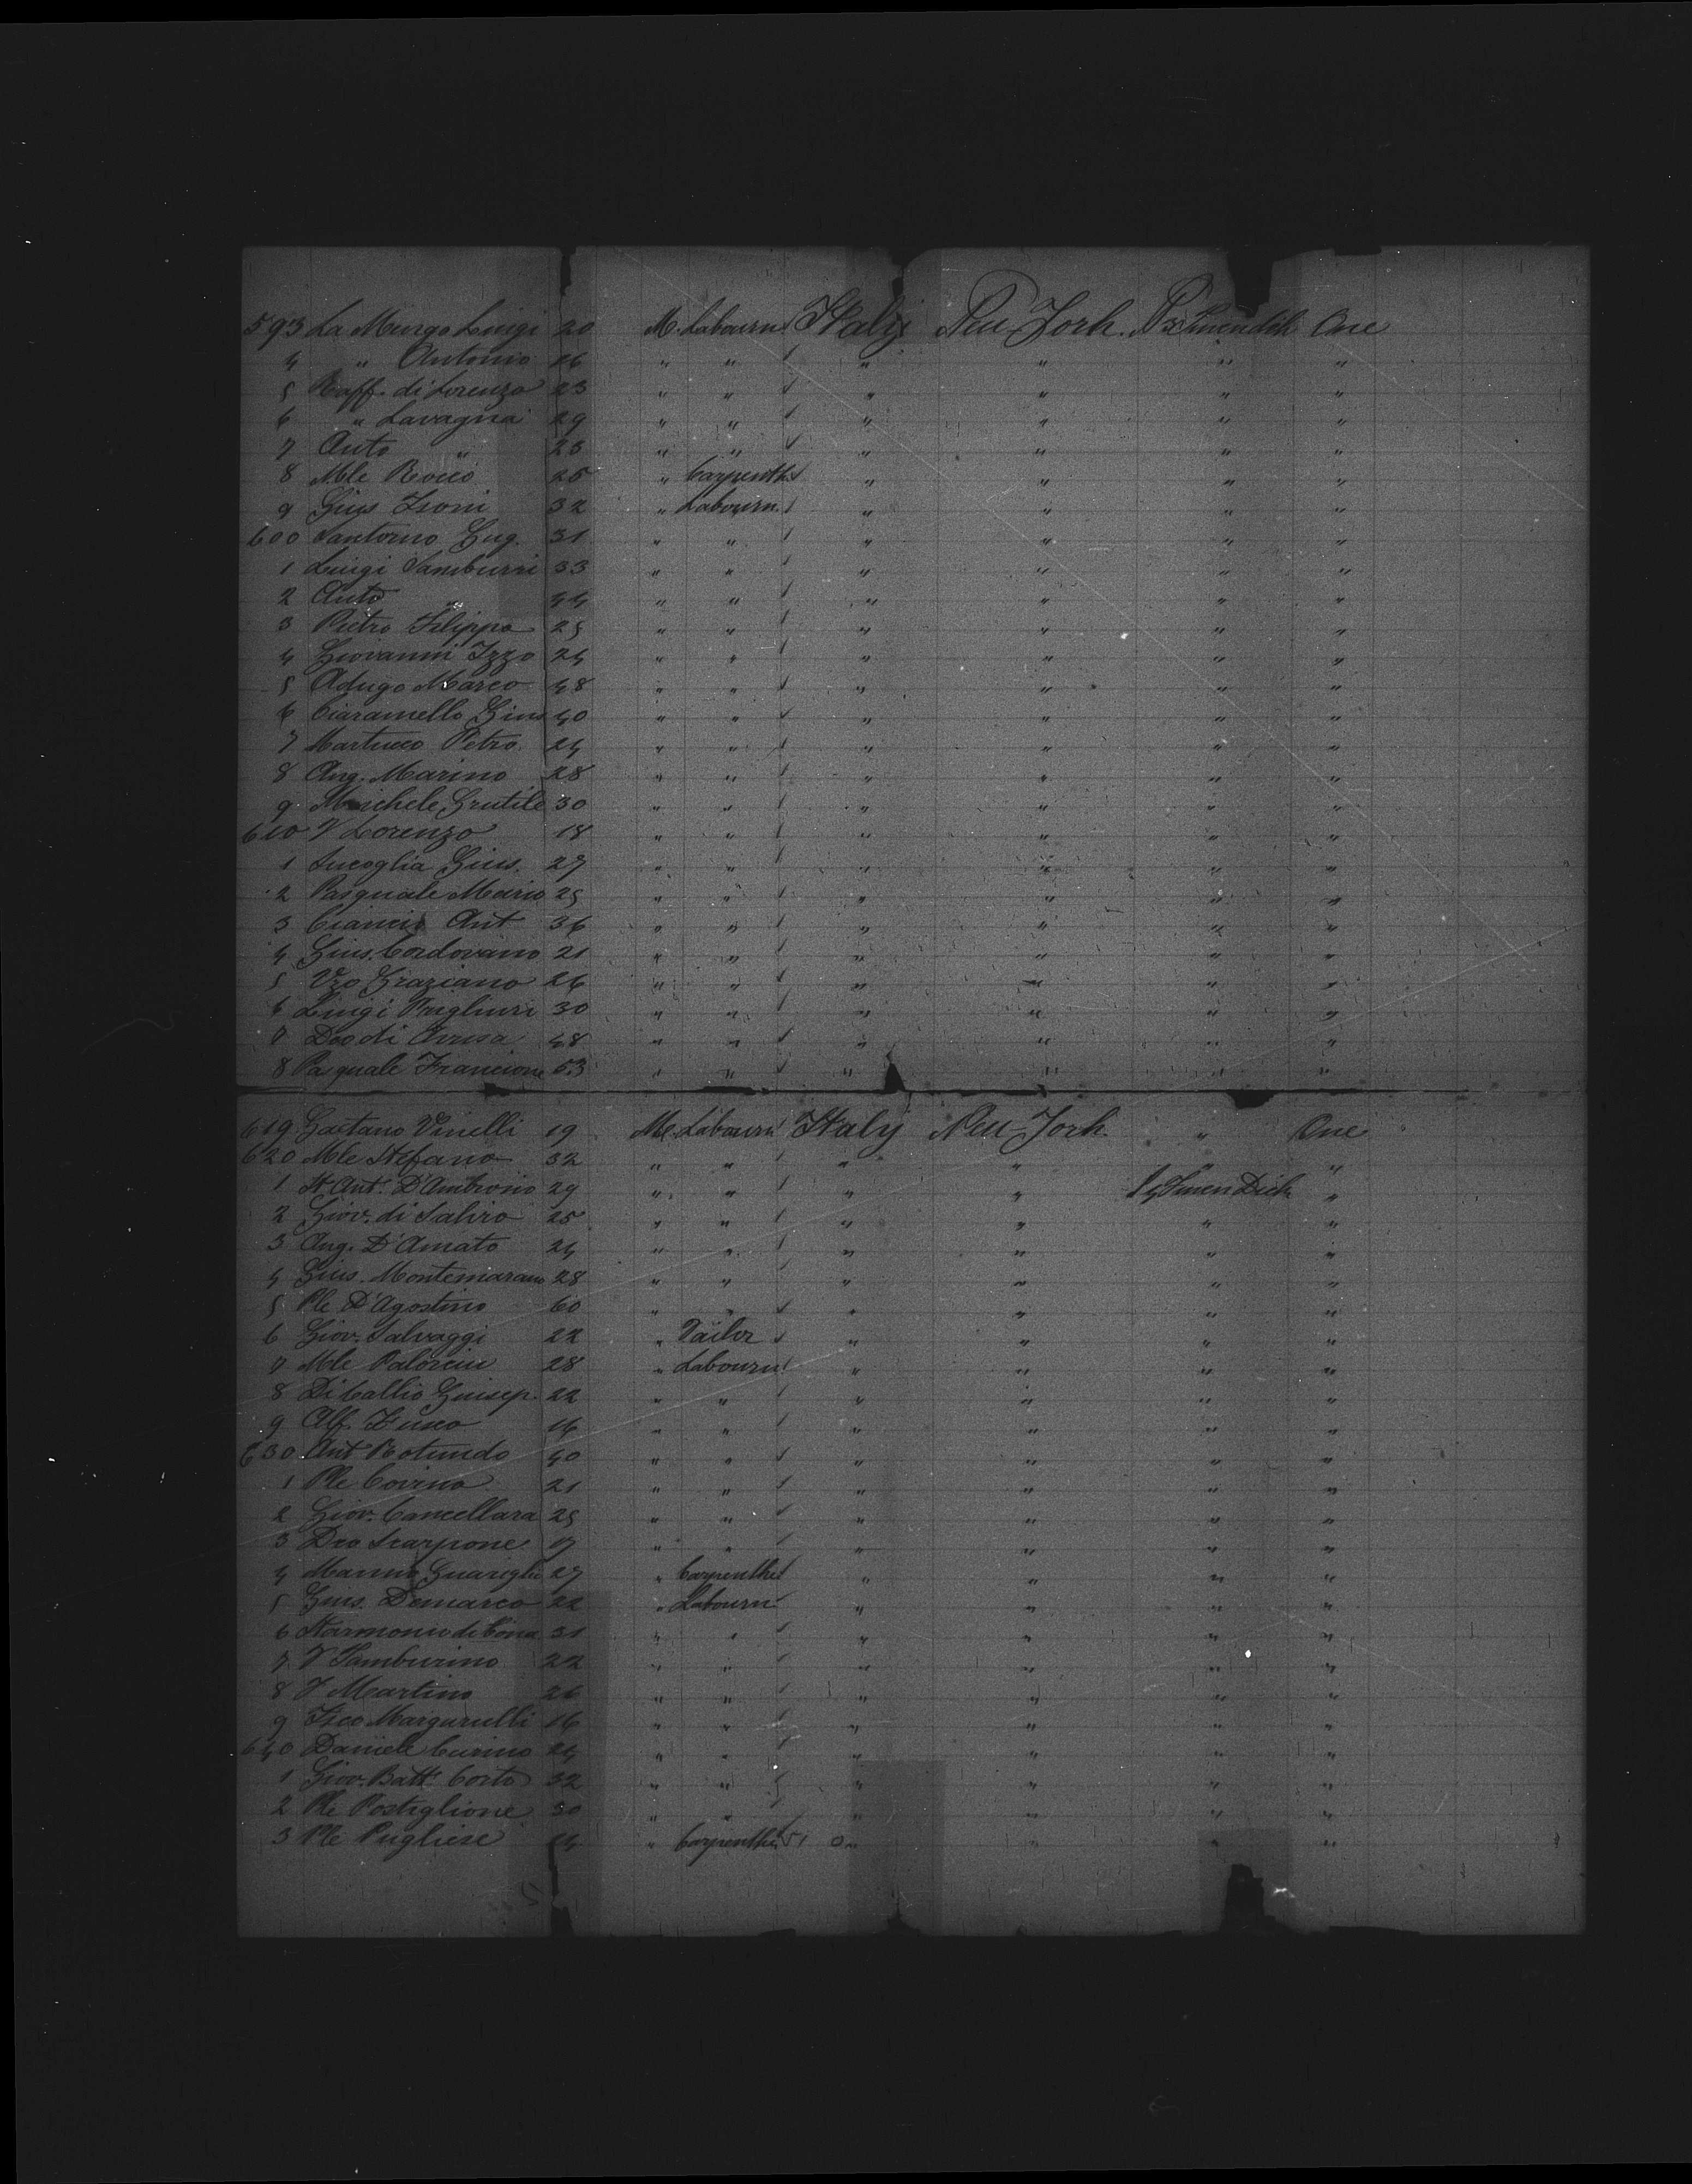 593 La Murgo Luigi 20 M. Labourn Italy New York. One
4 " Antonio 26 " " " " " "
5 Raff. di Lorenzo 23 " " " " " "
6 " Lavagna 29 " " " " " "
7 Anto " 23 " " " " " "
8 Mle Rocco 25 " Carpenth " " " "
9 Gius Isoni 32 " Labourn. " " " "
600 Santorno Gug. 31 " " " " " "
1 Luigi Tamburri 33 " " " " " "
2 Anto " 44 " " " " " "
3 Pietro Filippo 25 " " " " " "
4 Giovanni Izzo 24 " " " " " "
5 Adugo Marco 48 " " " " " "
6 Ciaramello Gius 40 " " " " " "
7 Martucco Petro. 24 " " " " " "
8 Ang. Marino 28 " " " " " "
9 Michele Grutile 30 " " " " " "
610 V Lorenzo 18 " " " " " "
1 Gius. 27 " " " " " "
2 Pasquale Mario 25 " " " " " "
3 Ciancio Ant 36 " " " " " "
4 Gius. Cordovano 21 " " " " " "
5 Vzo Graziano 26 " " " " " "
6 Luigi 30 " " " " " "
7 48 " " " " " "
8 Pasquale Francione 53 " " " " " "
619 Gaetano Vinelli 19 M. Labourn Italy New-York. " One
620 Mle Stefano 32 " " " " " "
1 Ant. D'Ambrosio 29 " " " " "
2 Giov. di Salvio 25 " " " " " "
3 Ang. D'Amato 24 " " " " " "
4 Gius. Montemarano 28 " " " " " "
5 Ple D'Agostino 60 " " " " " "
6 Giov. Salvaggi 22 " Tailor " " " "
7 Mle 28 " Labourn " " " "
8 Di Callio Guisep. 22 " " " " " "
9 Alf. Fusco 16 " " " " " "
630 Ant Rotundo 40 " " " " " "
1 Ple Covino 21 " " " " " "
2 Giov. Cancellara 25 " " " " " "
3 Dco Scarpone 17 " " " " " "
4 Guariglia 27 " Carpenther " " " "
5 Gius. Demarco 22 " Labourn " " " "
6 31 " " " " " "
7 V Tamburino 22 " " " " " "
8 V Martino 26 " " " " " "
9 16 " " " " " "
640 Daniele Curino 24 " " " " " "
1 Giov. Batt. Corto 32 " " " " " "
2 Ple Postiglione 30 " " " " " "
3 Ple Pugliese 24 " Carpenther " " " "